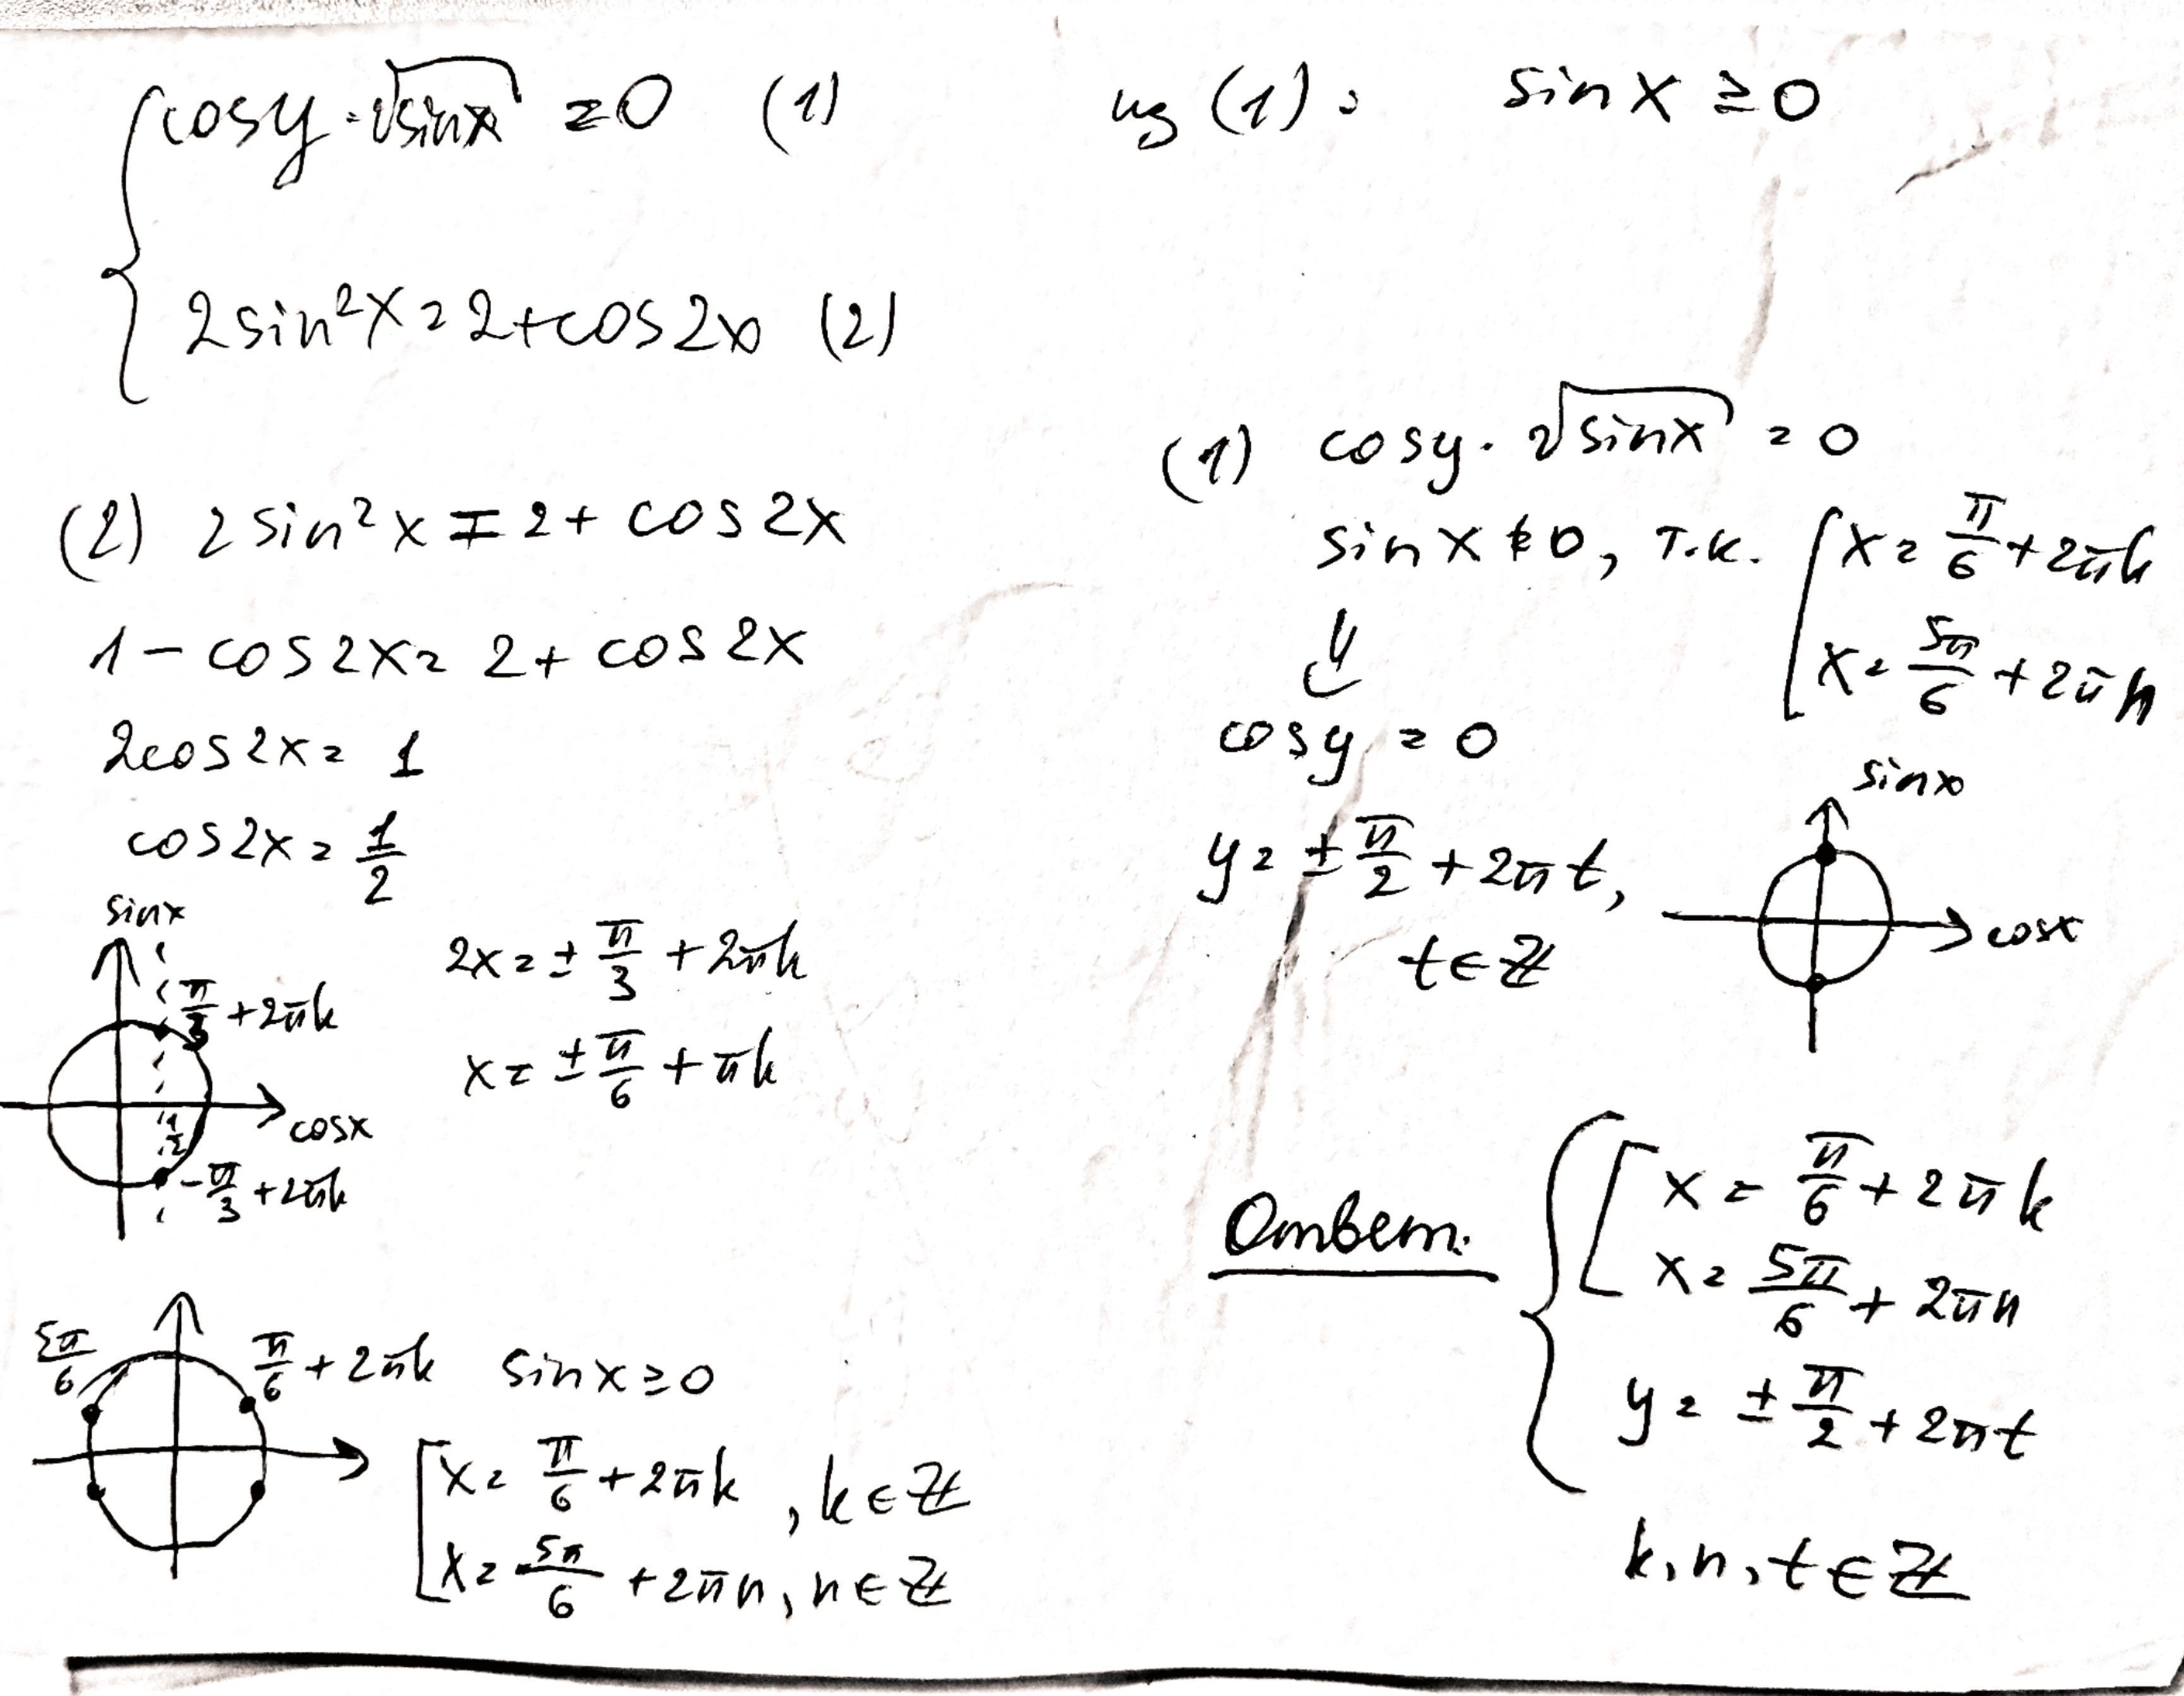 cosy · √sinx = 0 (1)
2sin²x = 2+cos2x (2)
(2) 2sin²x = 2+ cos2x
1 − cos2x = 2+ cos2x
2cos2x = 1
cos2x = 1/2
sinx
π/3 +2πk
1/2
cosx
−π/3 +2πk
2x = ± π/3 + 2πk
x = ± π/6 + πk
5π/6
π/6 + 2πk
sinx ≥ 0
x = π/6 + 2πk , k ∈ ℤ
x = 5π/6 + 2πn, n ∈ ℤ
из (1): sinx ≥ 0
(1) cosy · √sinx = 0
sinx ≠ 0, т.к. x = π/6 + 2πk
x = 5π/6 + 2πn
⇓
cosy = 0
y = ± π/2 + 2πt,
t ∈ ℤ
sinx
cosx
Ответ:
x = π/6 + 2πk
x = 5π/6 + 2πn
y = ± π/2 + 2πt
k, n, t ∈ ℤ